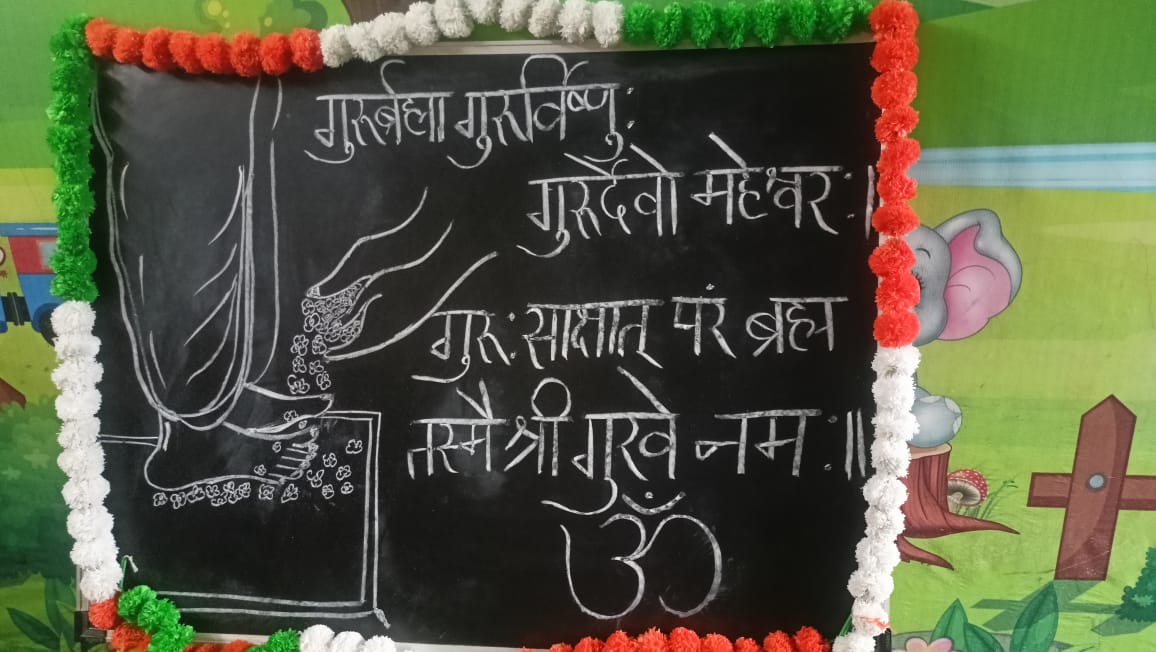 गुरुर्ब्रह्मा गुरुर्विष्णुः
गुरुर्देवो मेहश्वरः।
गुरुः साक्षात् परं ब्रह्म
तस्मै श्री गुरवे नमः॥
ॐ